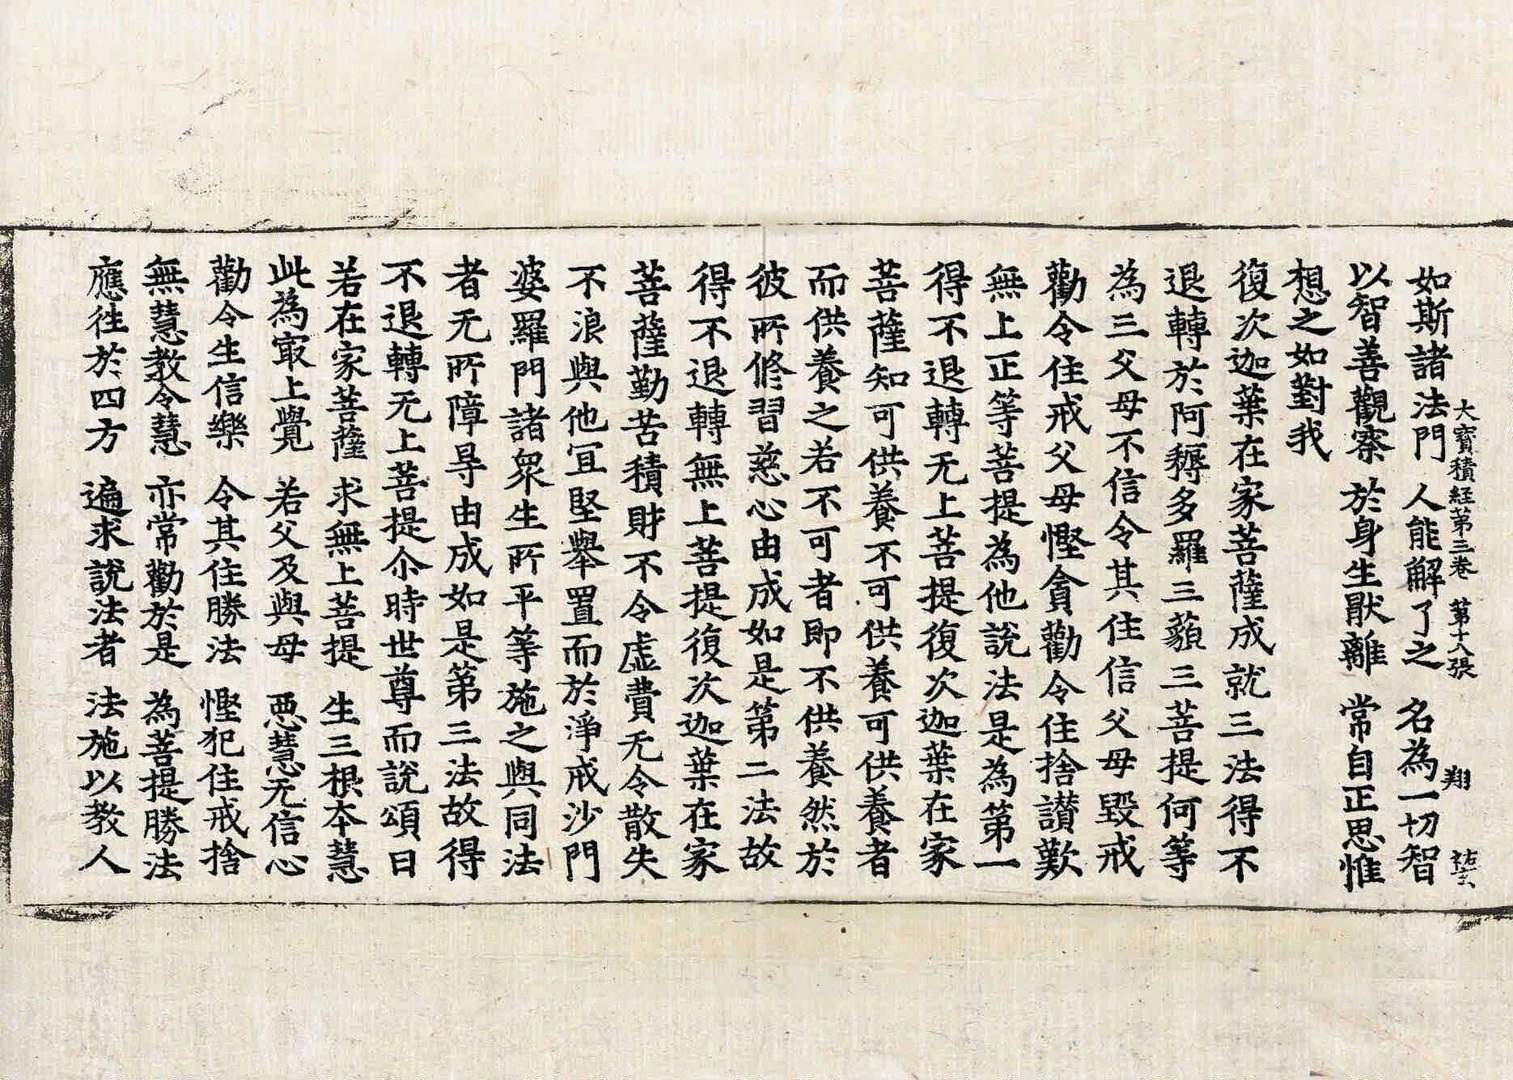 大寶積経第三卷　第十八張　翔
如斯諸法門　人能解了之　名為一切智
以智善觀察　於身生猒離　常自正思惟
想之如對我
復次迦葉在家菩薩成就三法得不
退轉於阿耨多羅三藐三菩提何等
為三父母不信令其住信父母毀戒
勸令住戒父母慳貪勸令住捨讃歎
無上正等菩提為他說法是為第一
得不退轉无上菩提復次迦葉在家
菩薩知可供養不可供養可供養者
而供養之若不可者即不供養然於
彼所修習慈心由成如是第二法故
得不退轉無上菩提復次迦葉在家
菩薩勤苦積財不令虛費无令散失
不浪與他冝堅舉置而於淨戒沙門
婆羅門諸衆生所平等施之與同法
者无所障㝵由成如是第三法故得
不退轉无上菩提尒時世尊而說頌曰
若在家菩薩　求無上菩提　生三根本慧
此為㝡上覺　若父及與母　惡慧无信心
勸令生信樂　令其住勝法　慳犯住戒捨
無慧教令慧　亦常勸於是　為菩提勝法
應往於四方　遍求說法者　法施以教人